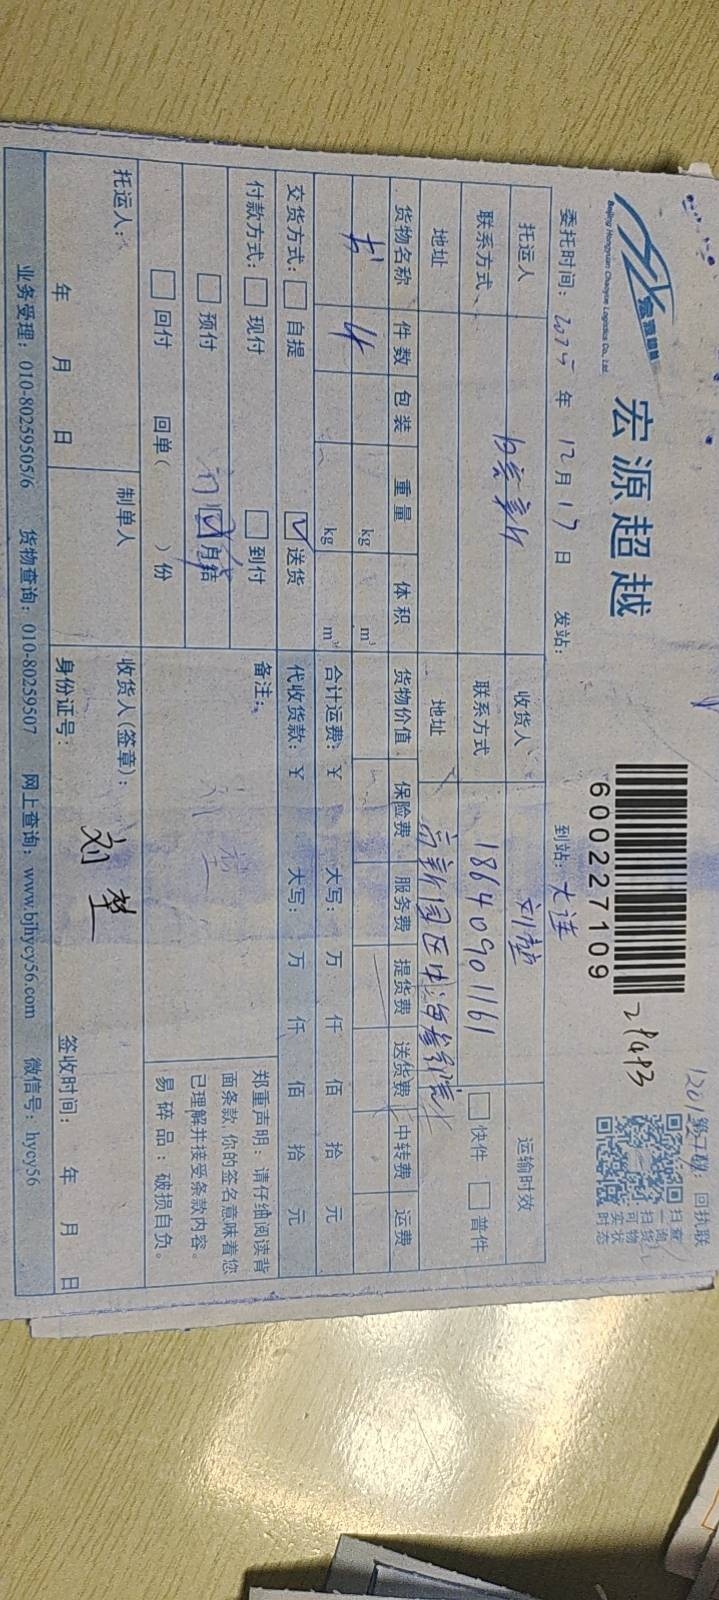 宏源超越
Beijing Hongyuan Chaoyue Logistics Co., Ltd.
宏源超越
6002227109
29493
1201
第二联：回执联
扫一扫
查流货物
可实时状态
委托时间：2025年12月17日 发站： 到站：大连
托运人 收货人 运输时效
联系方式 联系方式 18640901161 快件 普件
地址 地址 高新园区中海
货物名称 件数 包装 重量 体积 货物价值 保险费 服务费 提货费 送货费 中转费 运费
书 4 kg m³
kg m³ 合计运费：￥ 大写： 万 仟 佰 拾 元
交货方式： 自提 送货 代收货款：￥ 大写： 万 仟 佰 拾 元
付款方式： 现付 到付 备注：
预付 月结
回付 回单（ ）份
郑重声明：请仔细阅读背
面条款，你的签名意味着您
已理解并接受条款内容。
易碎品：破损自负。
托运人： 制单人 收货人(签章)：
刘楚
年 月 日 身份证号： 签收时间： 年 月 日
业务受理：010-80259505/6 货物查询：010-80259507 网上查询：www.bjhycy56.com 微信号：hycy56